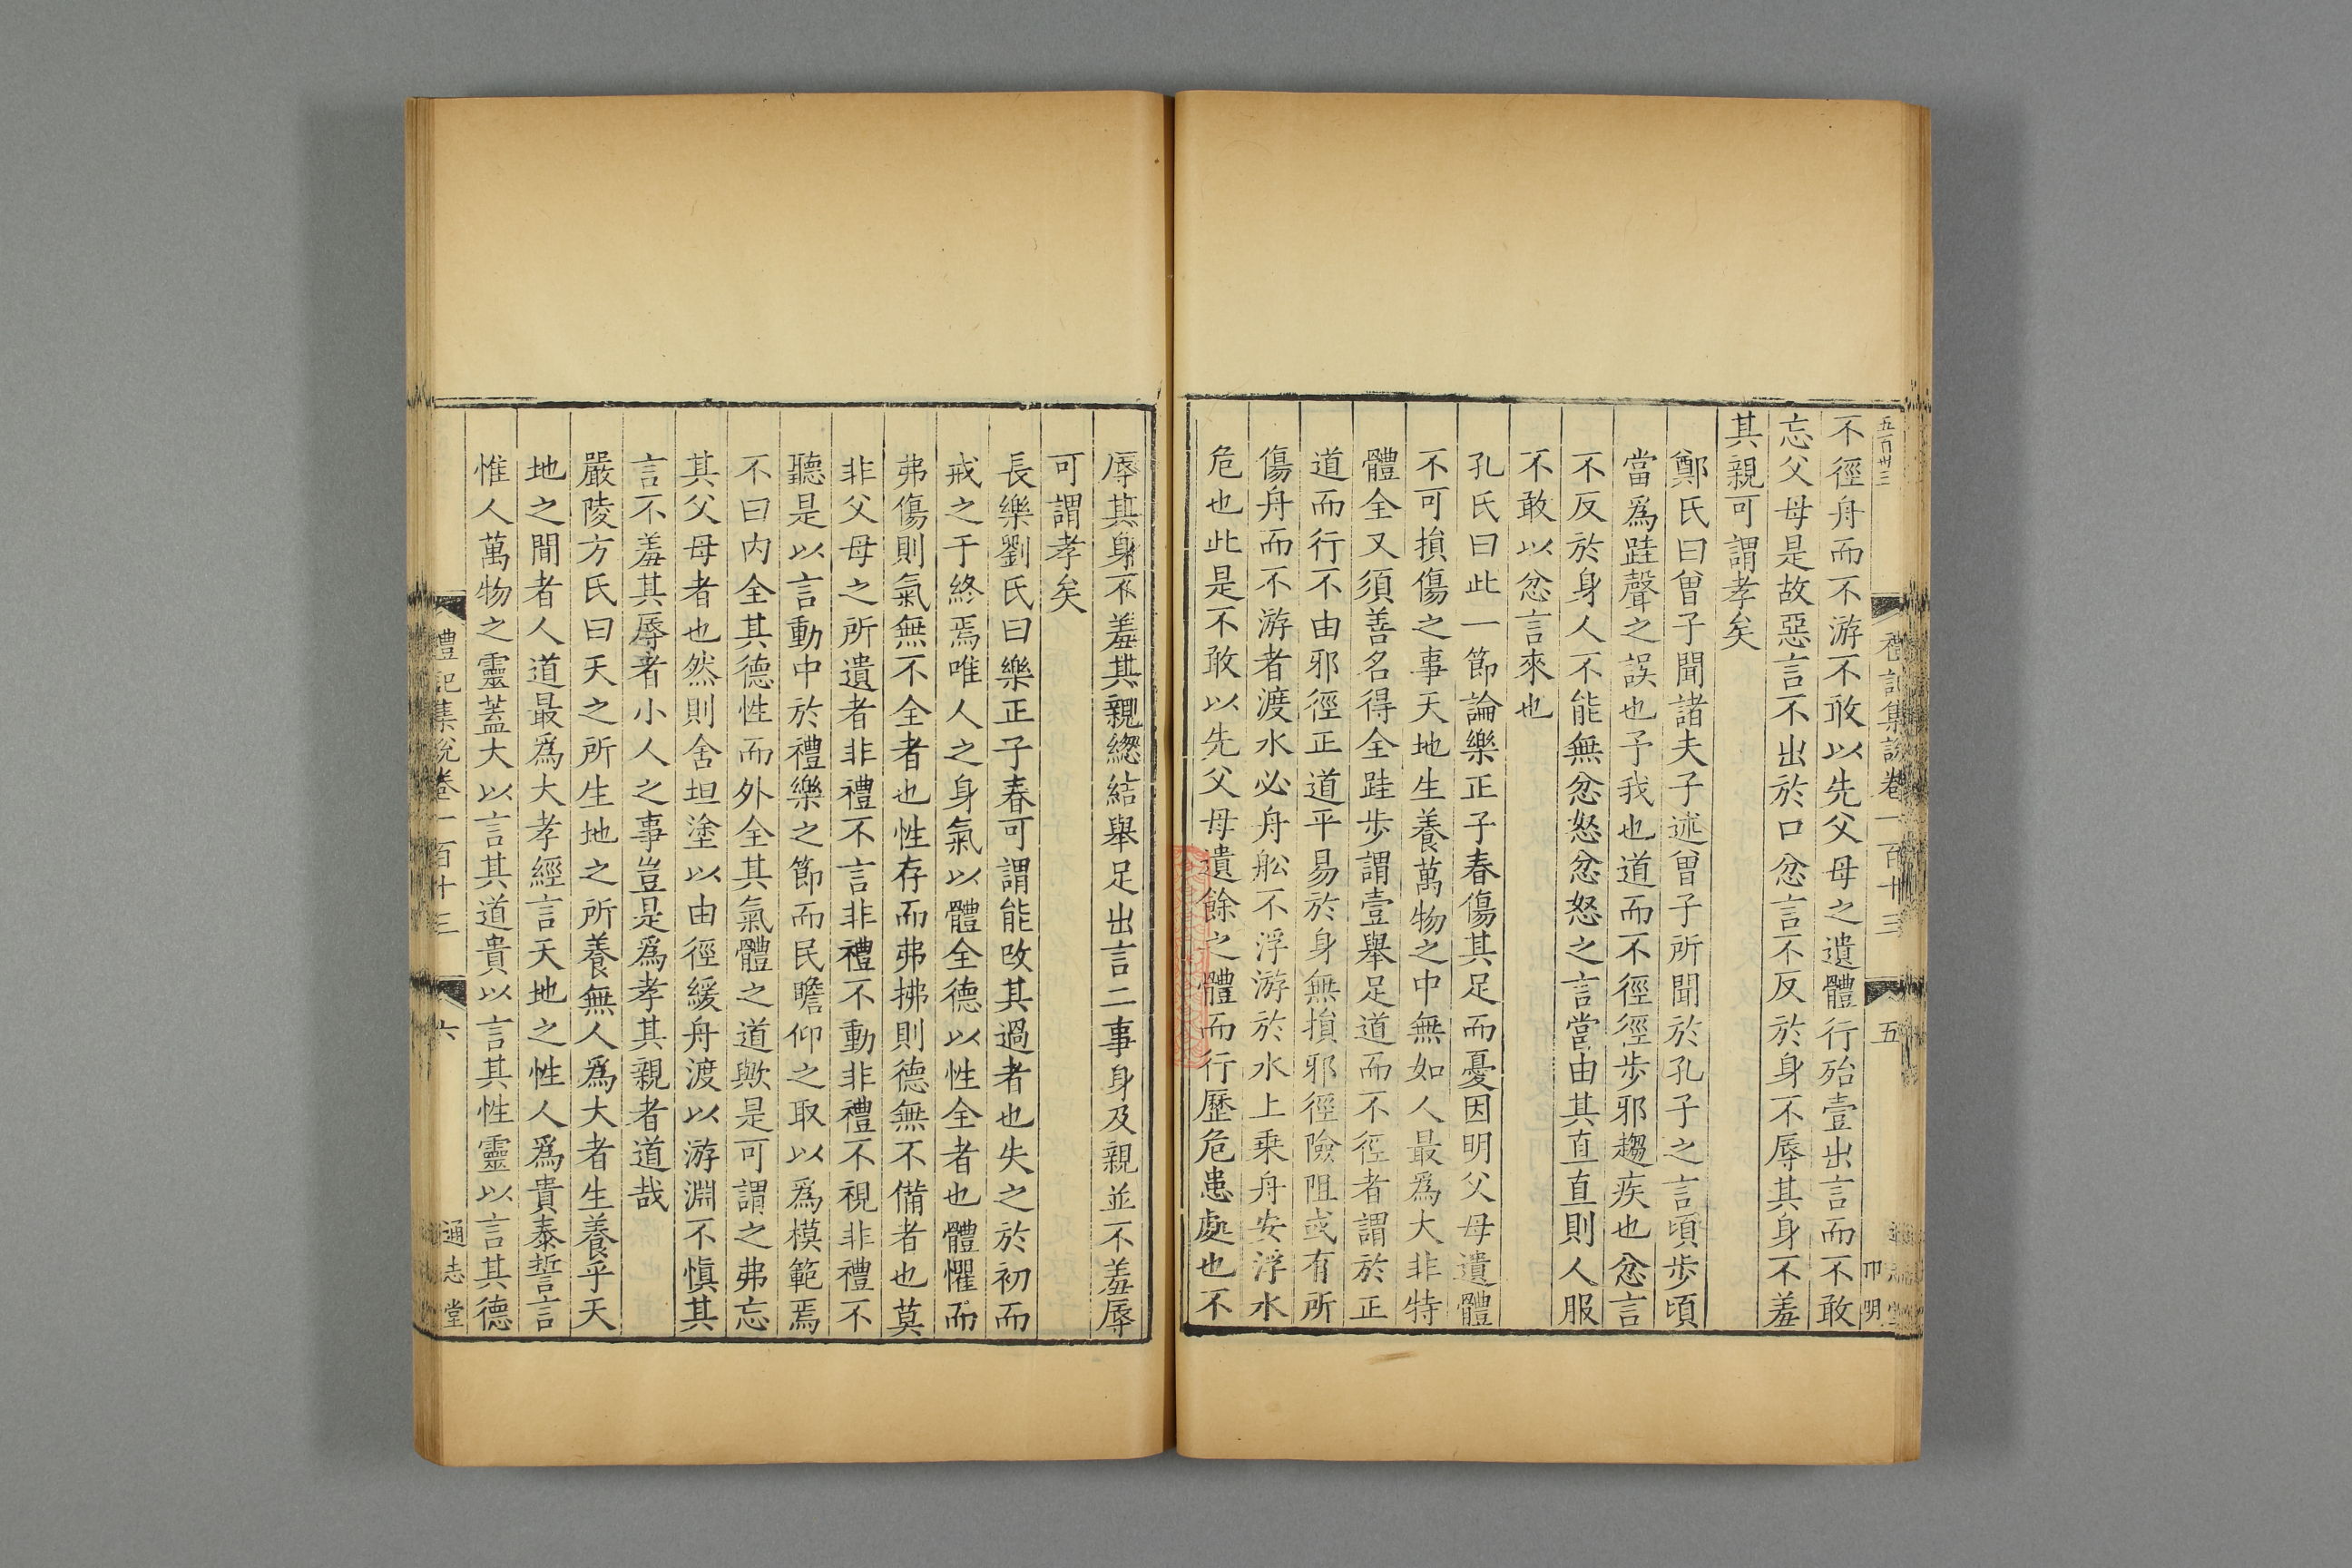 五百卅三
禮記集說卷一百十三
五
不徑舟而不游不敢以先父母之遺體行殆壹出言而不敢
忘父母是故惡言不出於口忿言不反於身不辱其身不羞
其親可謂孝矣
鄭氏曰曾子聞諸夫子述曾子所聞於孔子之言頃步頃
當爲跬聲之誤也予我也道而不徑徑步邪趨疾也忿言
不反於身人不能無忿怒忿怒之言當由其直直則人服
不敢以忿言來也
孔氏曰此一節論樂正子春傷其足而憂因明父母遺體
不可損傷之事天地生養萬物之中無如人最爲大非特
體全又須善名得全跬步謂壹舉足道而不徑者謂於正
道而行不由邪徑正道平易於身無損邪徑險阻或有所
傷舟而不游者渡水必舟舩不浮游於水上乗舟安浮水
危也此是不敢以先父母遺餘之體而行歷危患處也不
辱其身不羞其親緫結舉足出言二事身及親並不羞辱
可謂孝矣
長樂劉氏曰樂正子春可謂能改其過者也失之於初而
戒之于終焉唯人之身氣以體全德以性全者也體懼而
弗傷則氣無不全者也性存而弗拂則德無不備者也莫
非父母之所遺者非禮不言非禮不動非禮不視非禮不
聽是以言動中於禮樂之節而民瞻仰之取以爲模範焉
不曰内全其德性而外全其氣體之道歟是可謂之弗忘
其父母者也然則舍坦塗以由徑緩舟渡以游淵不愼其
言不羞其辱者小人之事豈是爲孝其親者道哉
嚴陵方氏曰天之所生地之所養無人爲大者生養乎天
地之間者人道最爲大孝經言天地之性人爲貴泰誓言
惟人萬物之靈蓋大以言其道貴以言其性靈以言其德
禮記集說卷一百十三
六
通志堂